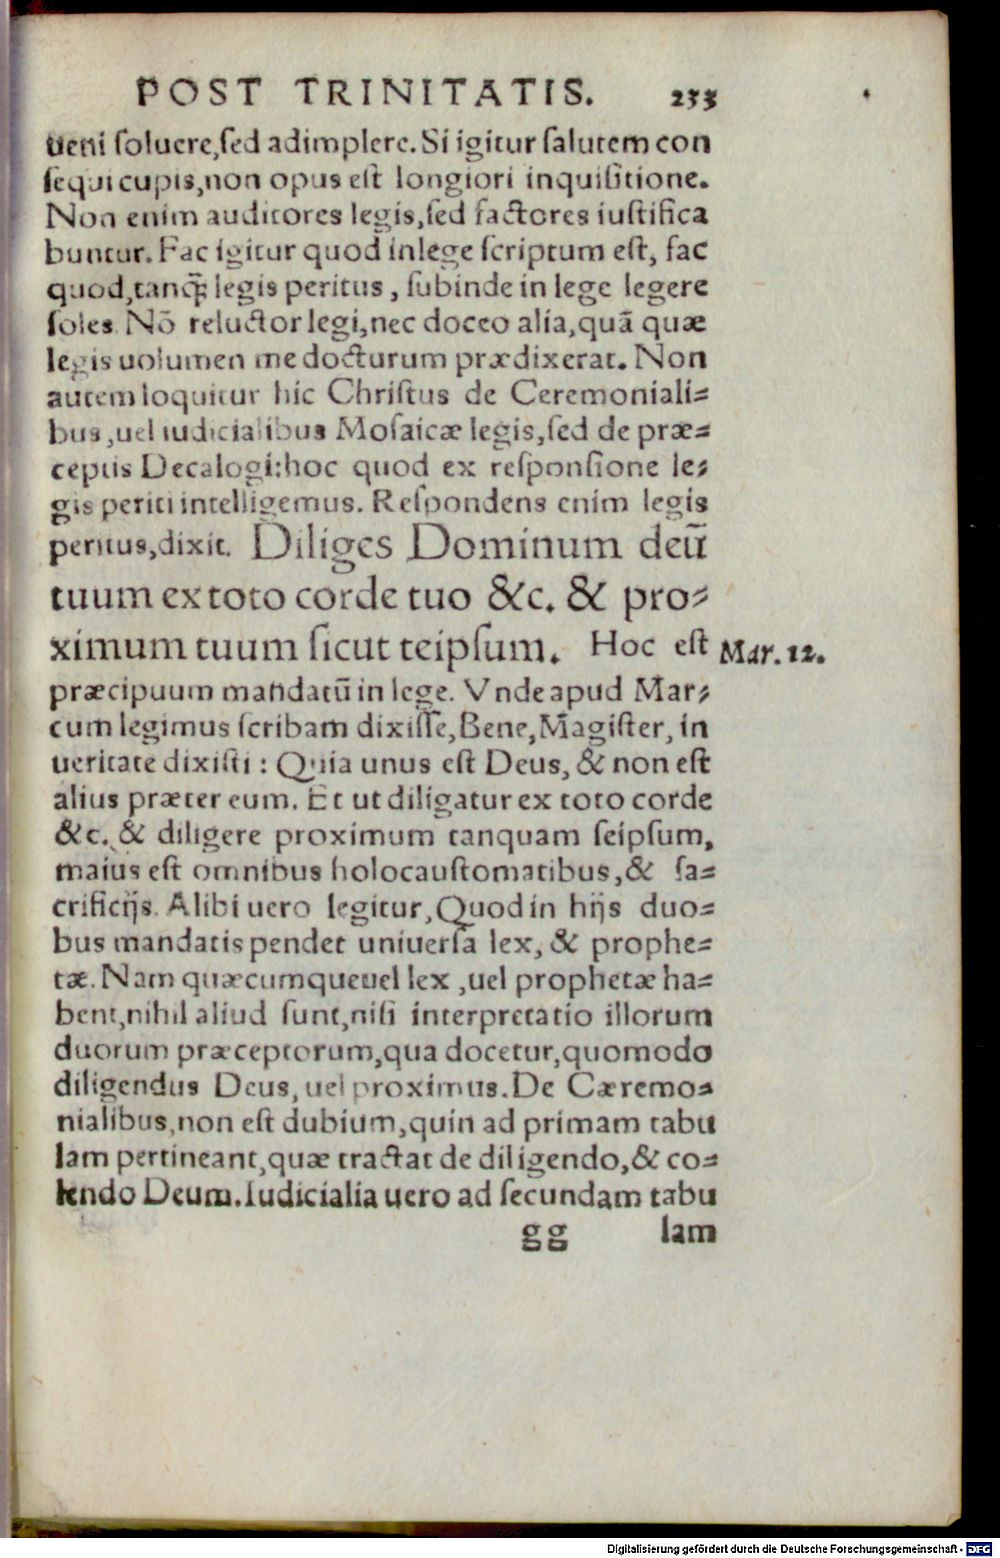 POST TRINITATIS. 233
ueni ſoluere,ſed adimplere. Si igitur ſalutem con
ſequi cupis,non opus eſt longiori inquiſitione.
Non enim auditores legis,ſed factores iuſtifica
buntur. Fac igitur quod inlege ſcriptum eſt, fac
quod,tanq̃ legis peritus, ſubinde in lege legere
ſoles. Nō reluctor legi,nec doceo alia,quā quæ
legis uolumen me docturum prædixerat. Non
autem loquitur hic Chriſtus de Ceremoniali⸗
bus,uel iudicialibus Moſaicæ legis,ſed de præ⸗
ceptis Decalogi:hoc quod ex reſponſione le⸗
gis periti intelligemus. Reſpondens enim legis
peritus,dixit. Diliges Dominum deū
tuum ex toto corde tuo &c. & pro⸗
ximum tuum ſicut teipſum. Hoc eſt Mar. 12.
præcipuum mandatū in lege. Vnde apud Mar⸗
cum legimus ſcribam dixiſſe,Bene,Magiſter, in
ueritate dixiſti : Quia unus eſt Deus, & non eſt
alius præter eum. Et ut diligatur ex toto corde
&c. & diligere proximum tanquam ſeipſum,
maius eſt omnibus holocauſtomatibus,& ſa⸗
crificijs. Alibi uero legitur,Quod in hijs duo⸗
bus mandatis pendet uniuerſa lex, & prophe⸗
tæ. Nam quæcumque uel lex ,uel prophetæ ha⸗
bent,nihil aliud ſunt,niſi interpretatio illorum
duorum præceptorum,qua docetur,quomodo
diligendus Deus, uel proximus. De Cæremo⸗
nialibus,non eſt dubium,quin ad primam tabu
lam pertineant,quæ tractat de diligendo,& co⸗
lendo Deum. Iudicialia uero ad ſecundam tabu
gg lam
Digitalisierung gefördert durch die Deutsche Forschungsgemeinschaft - DFG